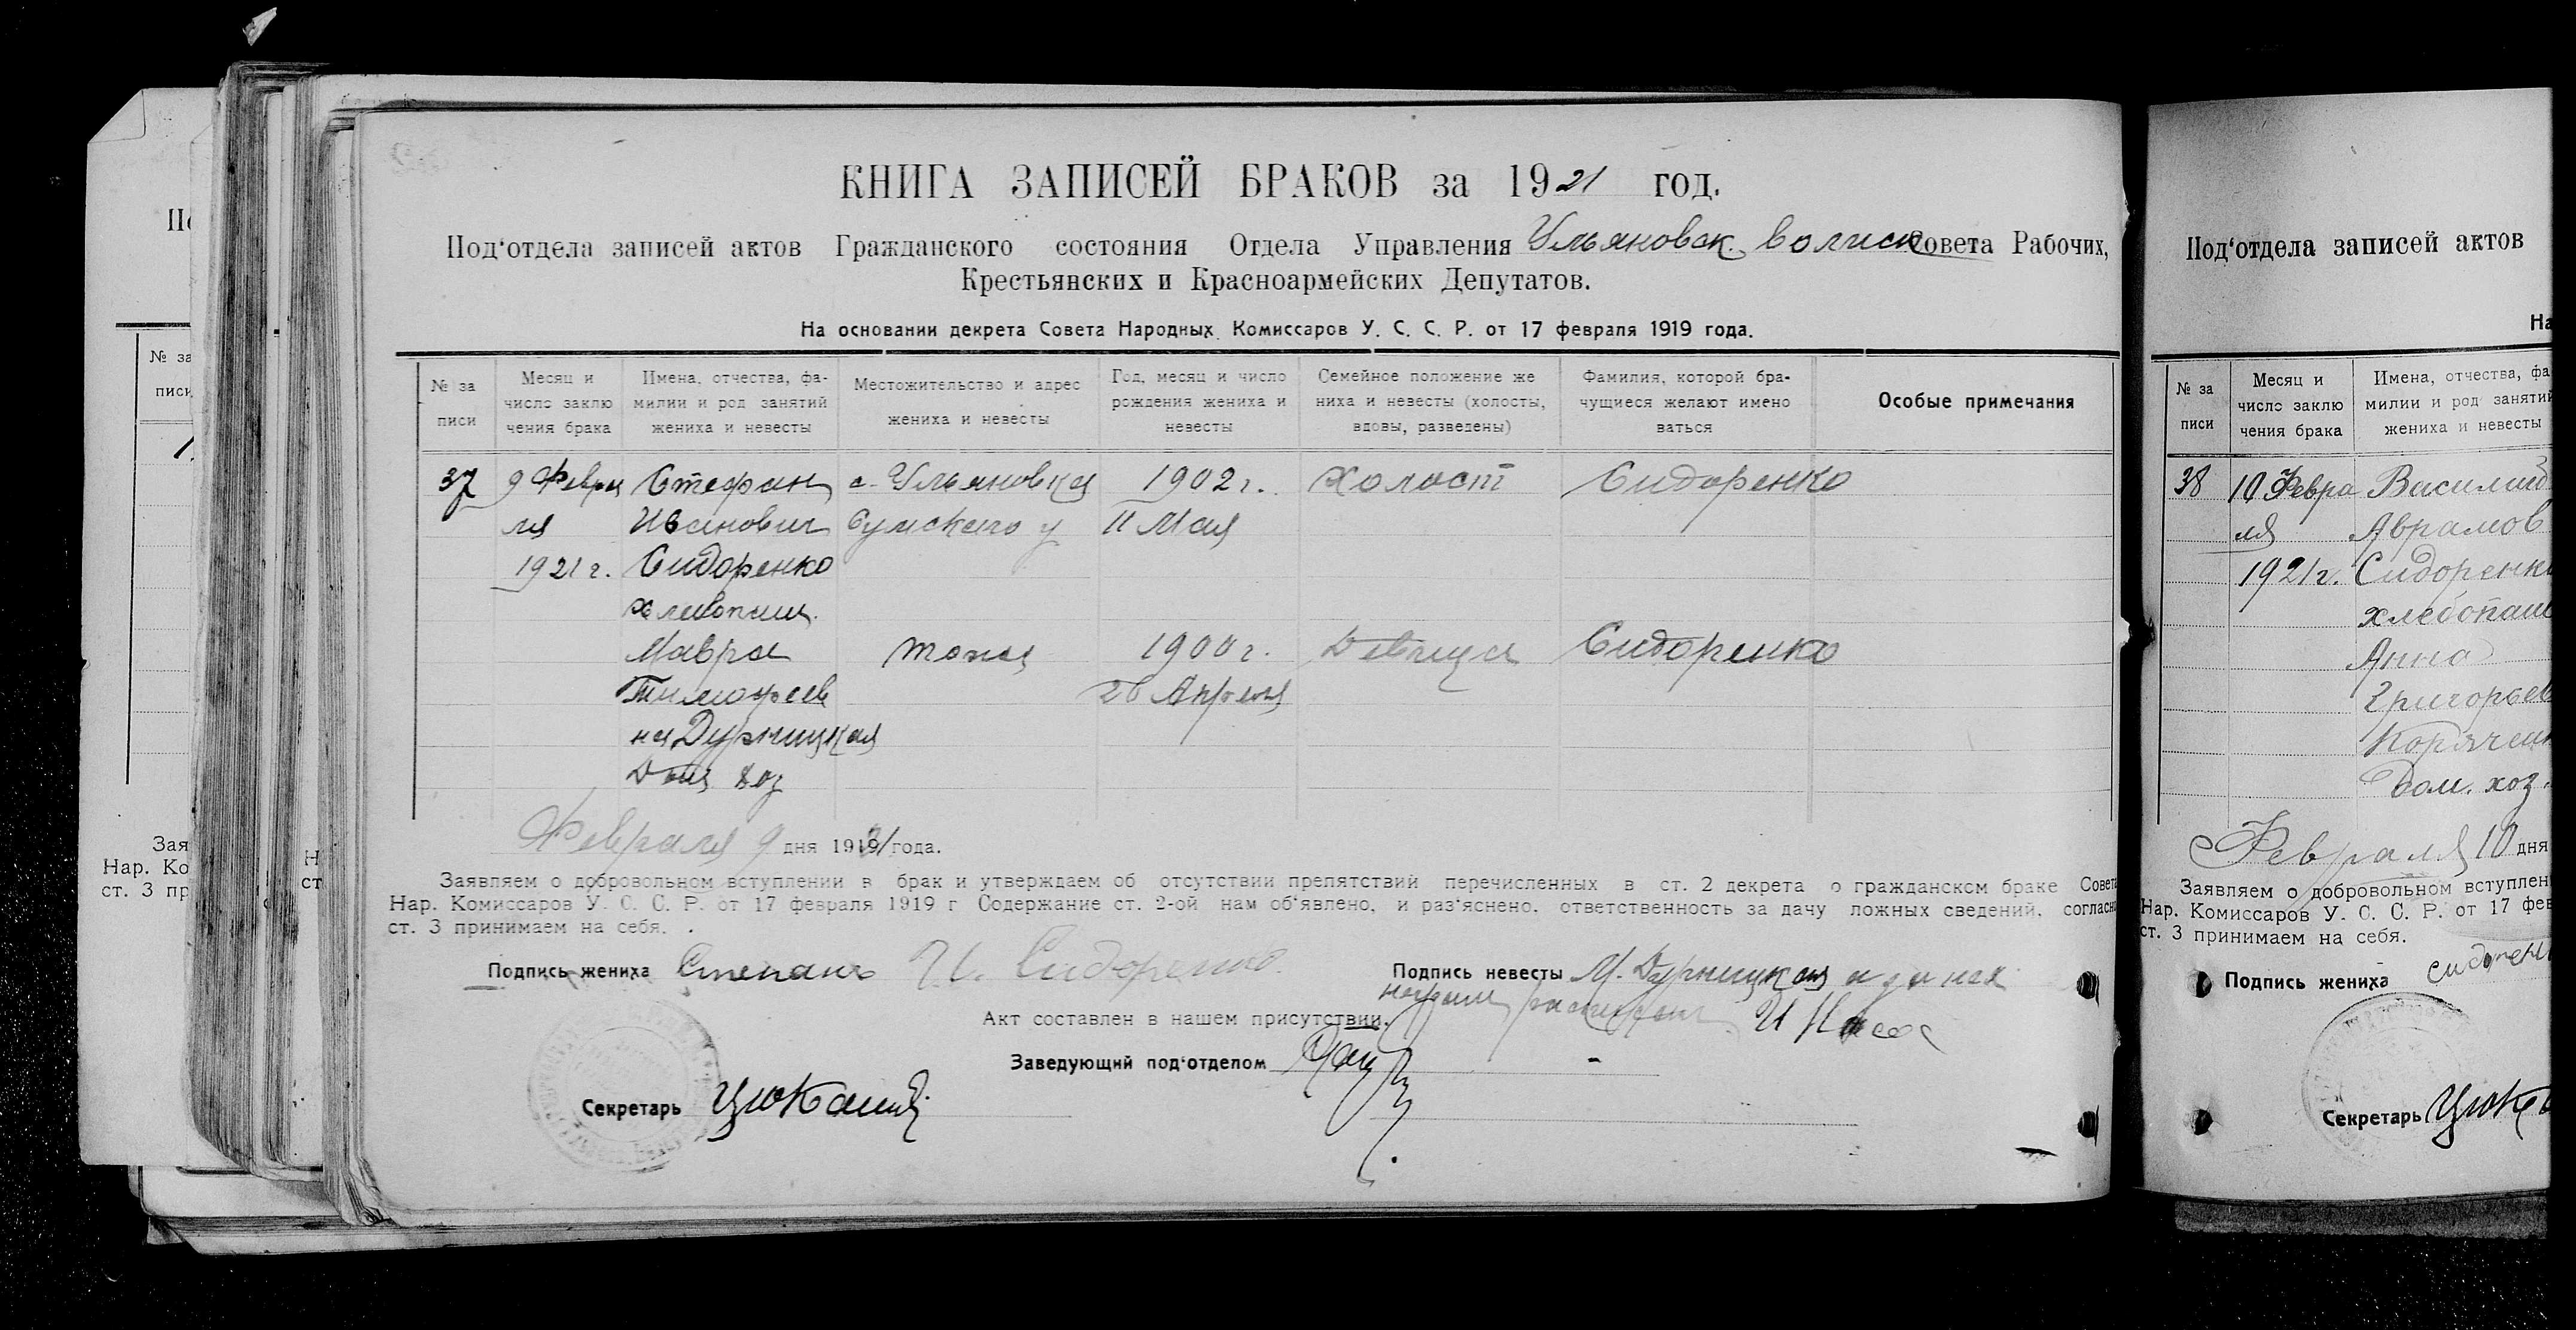 КНИГА ЗАПИСЕЙ БРАКОВ за 1921 год.
Под‘отдела записей актов Гражданского состояния Отдела Управления Ульяновск. волиск Совета Рабочих,
Крестьянских и Красноармейских Депутатов.
На основании декрета Совета Народных Комиссаров У. С. С. Р. от 17 февраля 1919 года.
№ за писи
Месяц и число заклю чения брака
Имена, отчества, фа- милии и род занятий жениха и невесты
Местожительство и адрес жениха и невесты
Год, месяц и число рождения жениха и невесты
Семейное положение же ниха и невесты (холосты, вдовы, разведены)
Фамилия, которой бра- чущиеся желают имено ваться
Особые примечания
37 9 Февра Стефан с. Ульяновка 1902 г. Холост Сидоренко
ля Иванович Сумского у 11 Мая
1921 г. Сидоренко
хлебопаш.
Мавра тоже 1900 г. Девица Сидоренко
Тимофеев 26 Апреля
на Дурницкая
Дом хоз
Февраля 9 дня 1921 года.
Заявляем о добровольном вступлении в брак и утверждаем об отсутствии препятствий перечисленных в ст. 2 декрета о гражданском браке Совета
Нар. Комиссаров У. С. С. Р. от 17 февраля 1919 г Содержание ст. 2-ой нам об‘явлено, и раз‘яснено, ответственность за дачу ложных сведений, согласно
ст. 3 принимаем на себя.
Подпись жениха Степанъ И. Сидоренко. Подпись невесты М. Дурницкая а за нея
Акт составлен в нашем присутствии.
Заведующий под‘отделом
Секретарь
Под‘отдела записей актов
На
№ за писи
Месяц и число заклю чения брака
Имена, отчества, фа милии и род занятий жениха и невесты
38 10 Февра Василий
ля Аврамов
1921 г. Сидоренко
хлебопаш
Анна
Григорьев
Дом. хоз.
Февраля 10 дня
Заявляем о добровольном вступлен
Нар. Комиссаров У. С. С. Р. от 17 фев
ст. 3 принимаем на себя.
Подпись жениха Сидорен
Секретарь
№ за
писи
Зая
Нар. Ко
ст. 3 пр